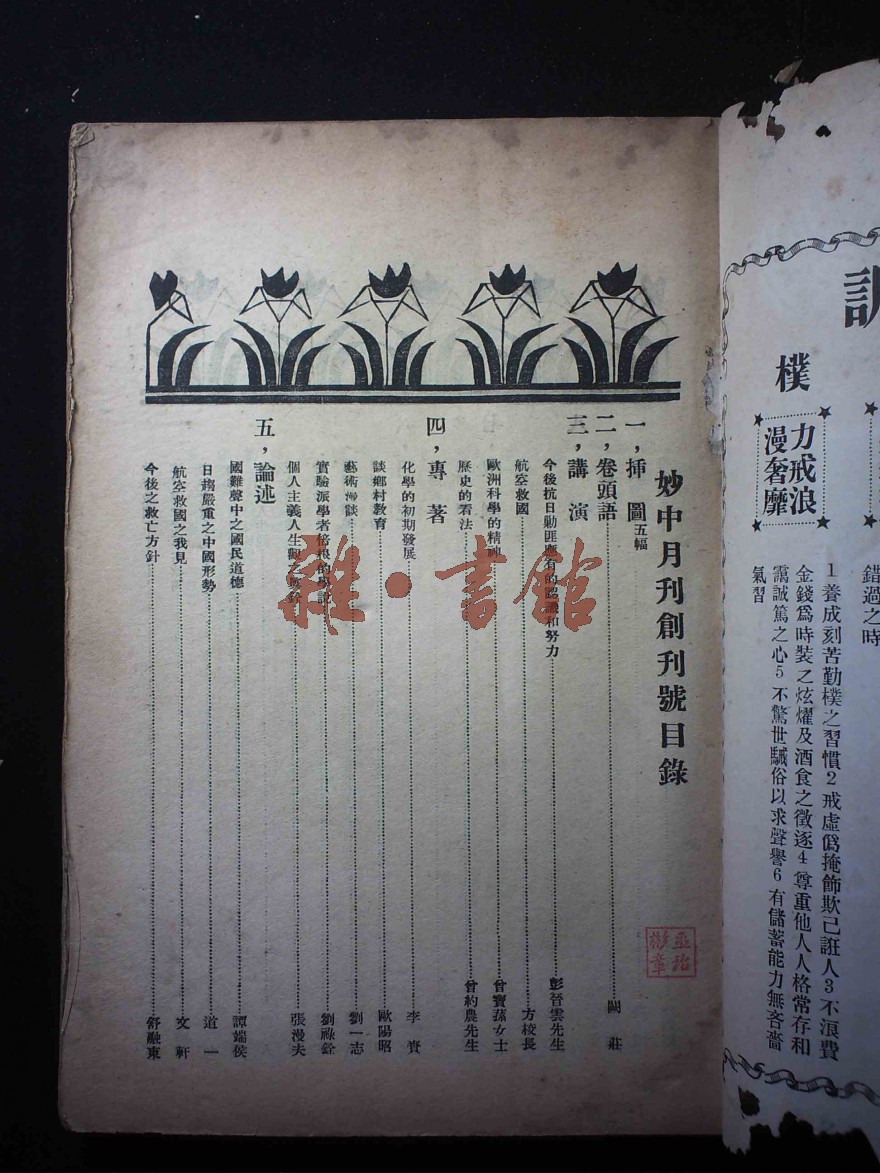 妙中月刊創刊號目錄
一，插　圖五幅
二，卷頭語 闕　莊
三，講　演
今後抗日勦匪應有的認識和努力 彭晉雲先生
航空救國 方校長
歐洲科學的精神 曾寶蓀女士
歷史的看法 曾約農先生
四，專　著
化學的初期發展 李　賓
談鄉村教育 歐陽昭
藝術漫談 劉一志
實驗派學者 的學說 劉祿銓
個人主義人生觀之 張漫夫
五，論述
國難聲中之國民道德 譚端侯
日趨嚴重之中國形勢 道　一
航空救國之我見 文　軒
今後之救亡方針 舒融東
雜·書館
訓
樸
力戒浪
漫奢靡
錯過之時
1養成刻苦勤樸之習慣2戒虛僞掩飾欺己誑人3不浪費
金錢爲時裝之炫燿及酒食之徵逐4尊重他人人格常存和
靄誠篤之心5不驚世駴俗以求聲譽6有儲蓄能力無吝嗇
氣習